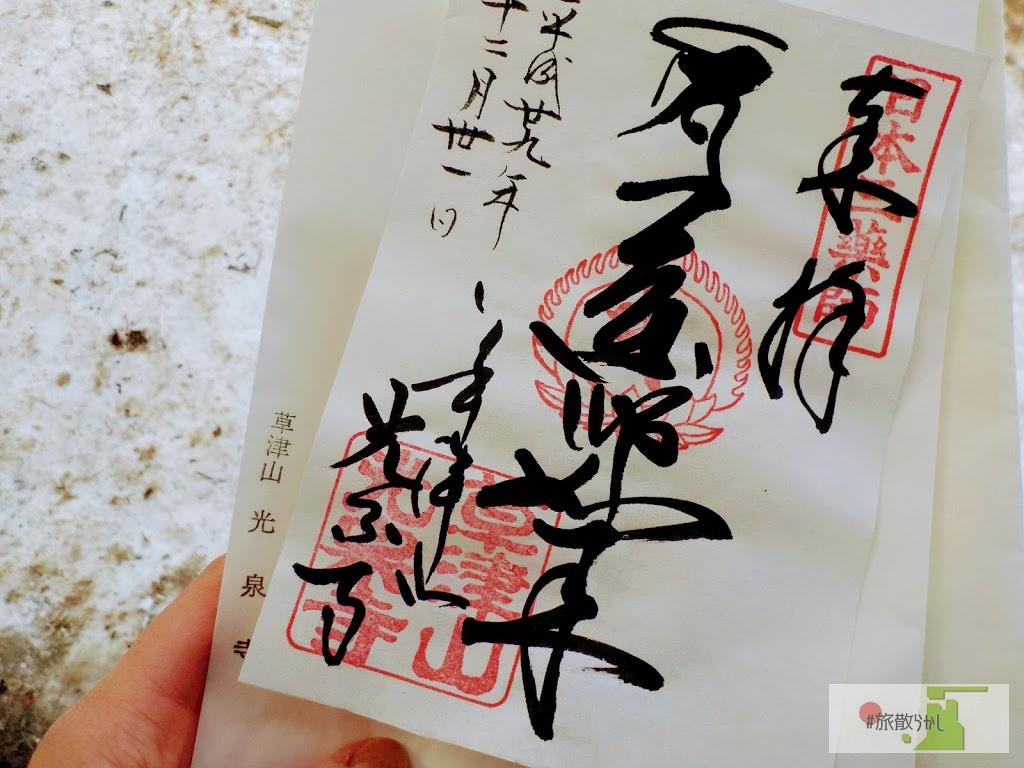 日本三藥師
奉拝
薬師如来
平成廿九年
十二月卅一日
草津山
光泉寺
草津山
光泉寺
草津山 光泉寺
#旅散らかし